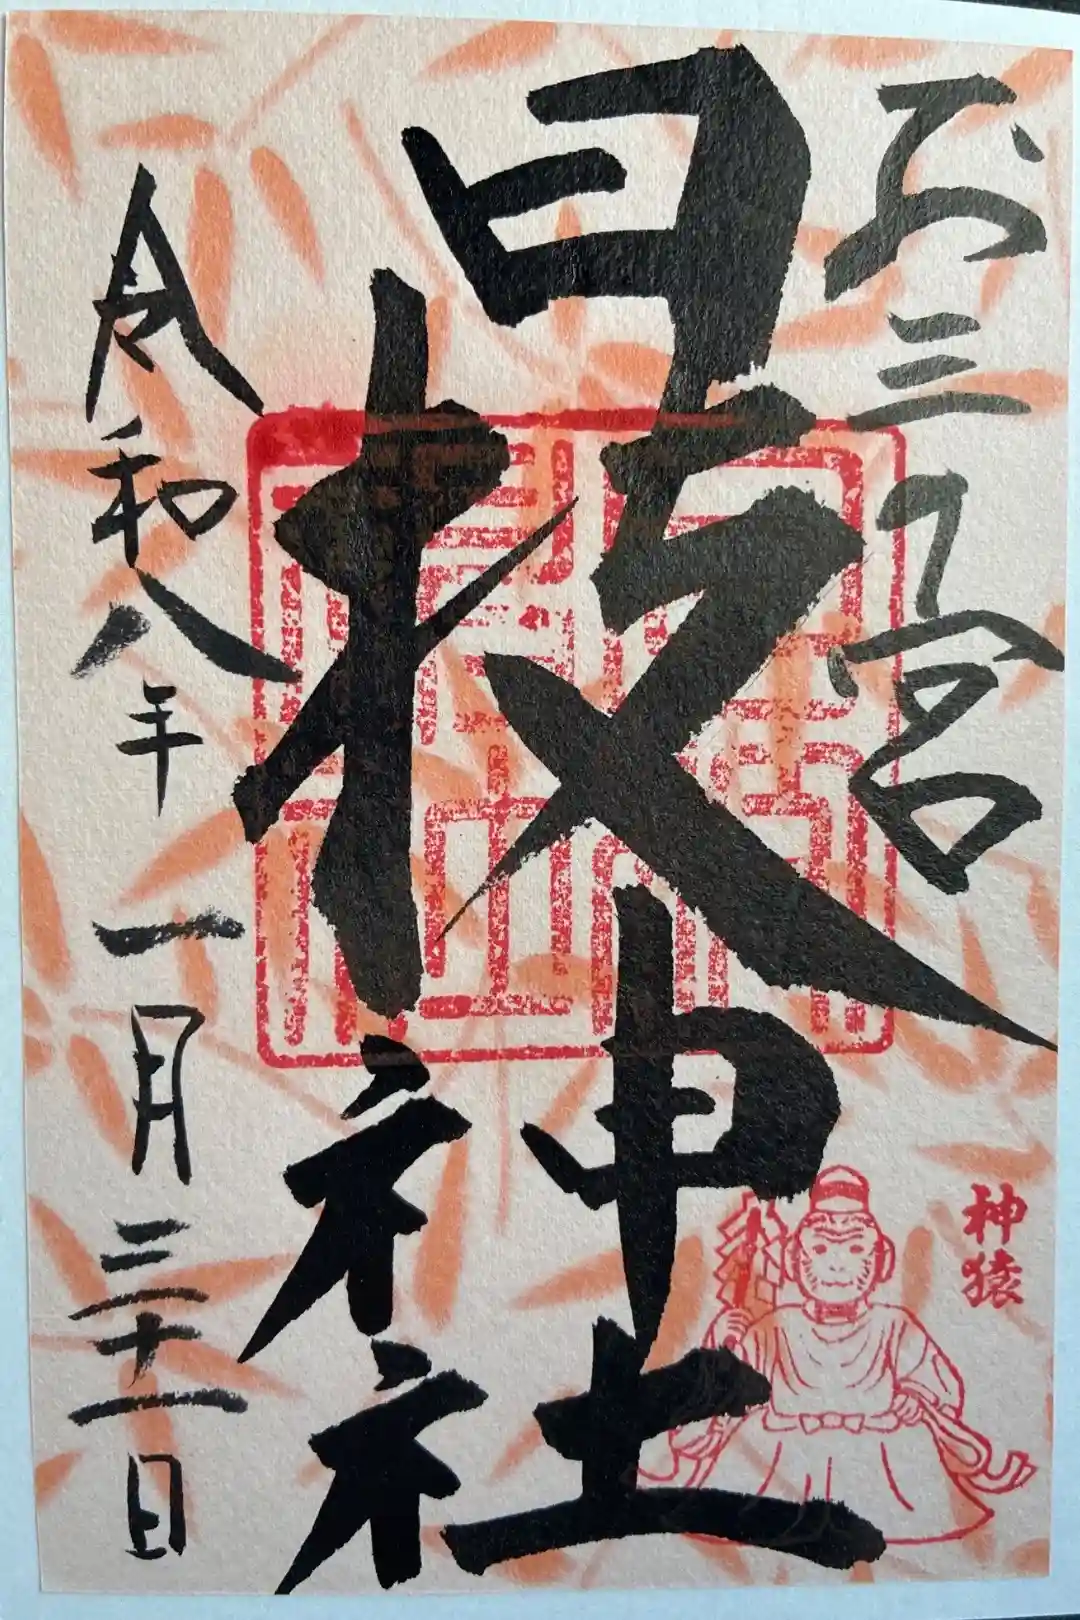 お三ノ宮
日枝神社
令和八年一月三十一日
神猿